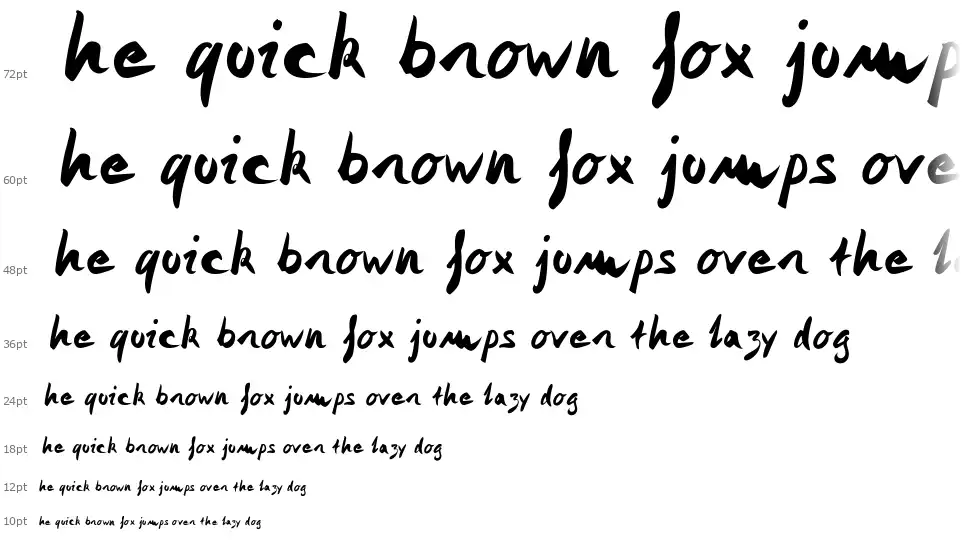 72pt he quick brown fox jump
60pt he quick brown fox jumps ove
48pt he quick brown fox jumps over the l
36pt he quick brown fox jumps over the lazy dog
24pt he quick brown fox jumps over the lazy dog
18pt he quick brown fox jumps over the lazy dog
12pt he quick brown fox jumps over the lazy dog
10pt he quick brown fox jumps over the lazy dog